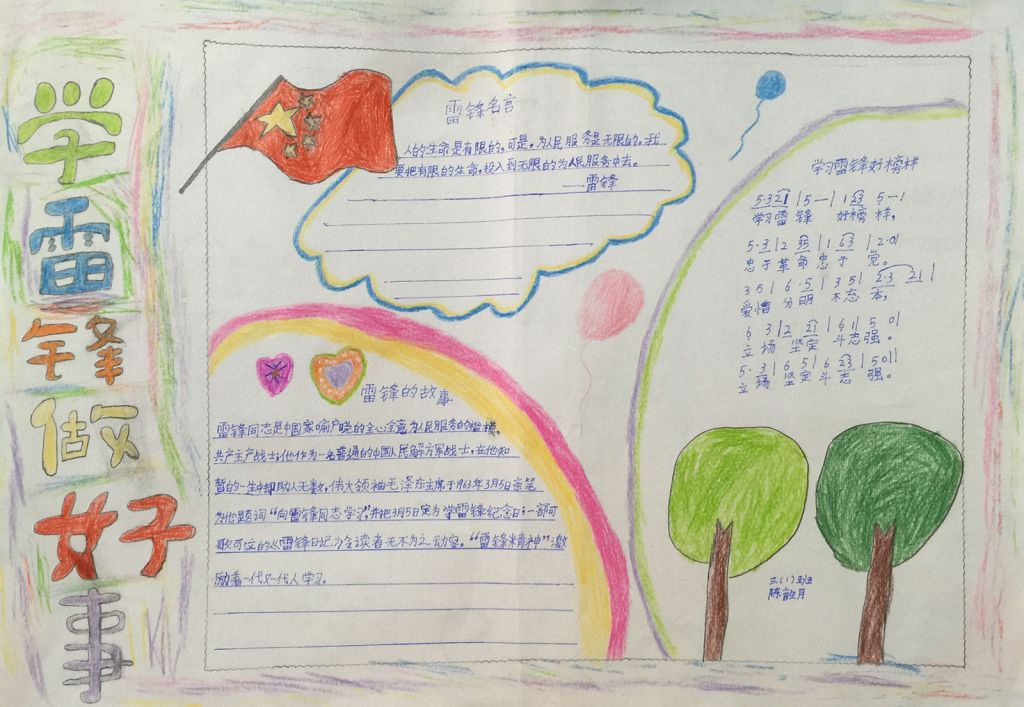 学雷锋做好事
雷锋名言
人的生命是有限的,可是,为人民服务是无限的。我
要把有限的生命,投入到无限的为人民服务中去。
——雷锋
学习雷锋好榜样
5·3 2 1 | 5 — | 1 2 3 5 — 1
学习雷锋 好榜样,
5·3 | 2 35 | 1 63 | 2·0 |
忠于革命忠于党。
3 5 | 6·5 | 3 5 | 2·3 2 1 |
爱憎分明不忘本,
6 3 | 2 21 | 6 1 | 5 0 |
立场坚定斗志强。
5·3 | 6 5 | 6 23 | 5 0 ||
立场坚定斗志强。
雷锋的故事
雷锋同志是中国家喻户晓的全心全意为人民服务的楷模,
共产主产战士;他作为一名普通的中国人民解方军战士,在他短
暂的一生中却助人无数,伟大领袖毛泽东主席于1963年3月5日亲笔
为他题词“向雷锋同志学习”,并把3月5日定为学雷锋纪念日;一部可
歌可泣的《雷锋日记》令读者无不为之动容。“雷锋精神”激
励着一代又一代人学习。
三(1)班
陈歆月